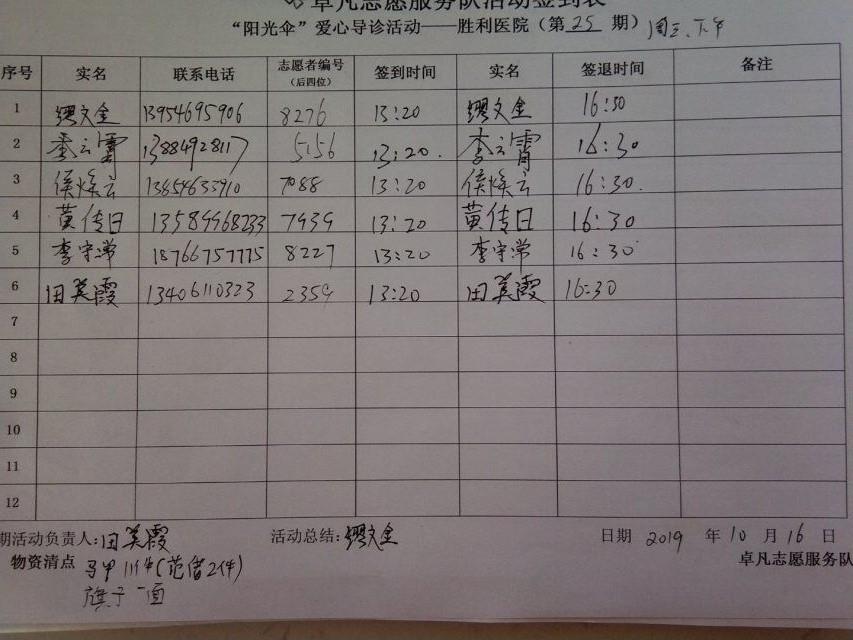 卓凡志愿服务队活动签到表
“阳光伞”爱心导诊活动——胜利医院（第25期）周三、下午
序号 实名 联系电话 志愿者编号（后四位） 签到时间 实名 签退时间 备注
1 缪文金 13954695906 8276 13:20 缪文金 16:30
2 李云霄 13884928117 5156 13:20. 李云霄 16:30
3 侯焕云 13854633910 7088 13:20 侯焕云 16:30.
4 黄传日 13589968233 7939 13:20 黄传日 16:30
5 李守常 18766757775 8227 13:20 李守常 16:30
6 田美霞 13406110323 2359 13:20 田美霞 16:30
7
8
9
10
11
12
期活动负责人:田美霞 活动总结:缪文金 日期 2019 年 10 月 16 日
物资清点 马甲 11件(范借2件) 卓凡志愿服务队
旗子一面